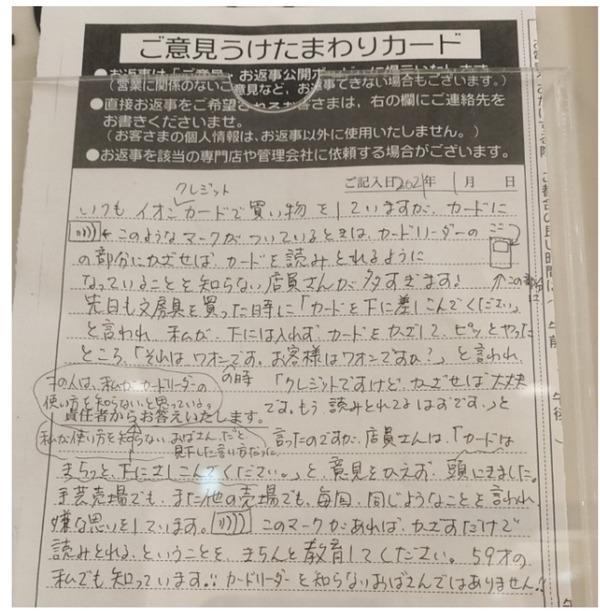 ご意見うけたまわりカード
●お返事は「ご意見・お返事公開ボードに掲示いたします。
(営業に関係のないご意見など、お返事できない場合もございます。)
●直接お返事をご希望されるお客さまは、右の欄にご連絡先を
お書きくださいませ。
(お客さまの個人情報は、お返事以外に使用いたしません。)
●お返事を該当の専門店や管理会社に依頼する場合がございます。
ご記入日2021年 1月 日
クレジット
いつも イオンカードで買い物をしていますが、カードに
←このようなマークがついているときは、カードリーダーの
の部分にかざせば、カードを読みとれるように
なっていることを知らない店員さんが多すぎます!
↑この部分に
先日も文房具を買った時に「カードを下に差しこんでください」
と言われ、私が、下には入れず、カードをかざして、ピッとやった
ところ、「それは、ワオンです。お客様はワオンですか?」と言われ、
その人は、私がカードリーダーの
使い方を知らないと思っている。
の時
「クレジットですけど、かざせば大丈夫
責任者からお答えいたします。
です。もう、読みとれてるはずです。」と
私が使い方を知らないおばさんだと
見下した言い方だった
言ったのですが、店員さんは、「カードは
きちっと、下にさしこんでください。」と、意見をかえず、頭にきました。
手芸売場でも、また他の売場でも、毎回、同じようなことを言われ
嫌な思いをしています。 このマークがあれば、かざすだけで
読みとれる、ということを、きちんと教育してください。59才の
私でも知っています!!カードリーダーを知らないおばさんではありません!
午前
午後